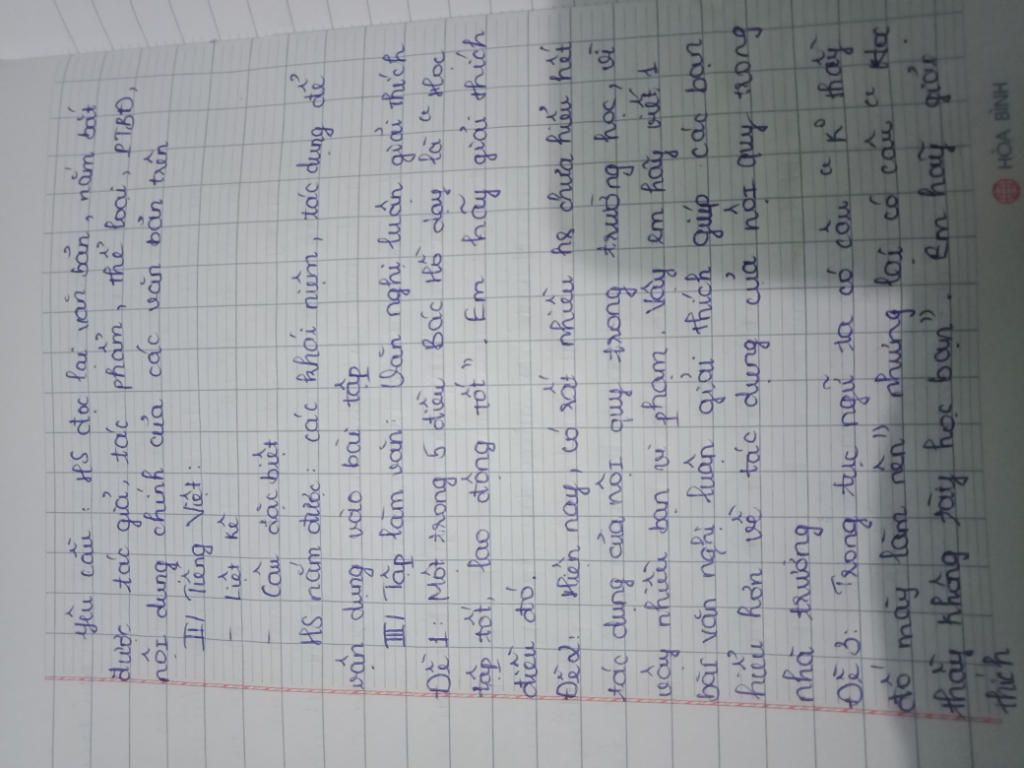 Yêu cầu : HS đọc lại văn bản, nắm bắt
được tác giả, tác phẩm, thể loại, PTBĐ,
nội dung chính của các văn bản trên
II/ Tiếng Việt :
- Liệt kê
- Câu đặc biệt
HS nắm được : các khái niệm, tác dụng để
vận dụng vào bài tập
III/ Tập làm văn : Văn nghị luận giải thích
Đề 1 : Một trong 5 điều Bác Hồ dạy là " Học
tập tốt, lao động tốt ". Em hãy giải thích
điều đó.
Đề 2 : Hiện nay, có rất nhiều hs chưa hiểu hết
tác dụng của nội quy trong trường học, vì
vậy nhiều bạn vi phạm. Vậy em hãy viết 1
bài văn nghị luận giải thích giúp các bạn
hiểu hơn về tác dụng của nội quy trong
nhà trường
Đề 3 : Trong tục ngữ ta có câu " K° thầy
đố mày làm nên " nhưng lại có câu " Học
thầy không tày học bạn ". Em hãy giải
thích
HÒA BÌNH